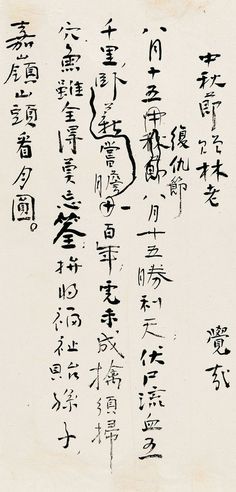 中秋節貽林老
覺哉
復仇節
八月十五中秋節八月十五勝利天伏尸流血五
千里卧薪嘗膽一百年虎未成擒須掃
穴魚雖全得莫忘筌拚将福祉貽孫子
嘉嶺山頭看月圓。